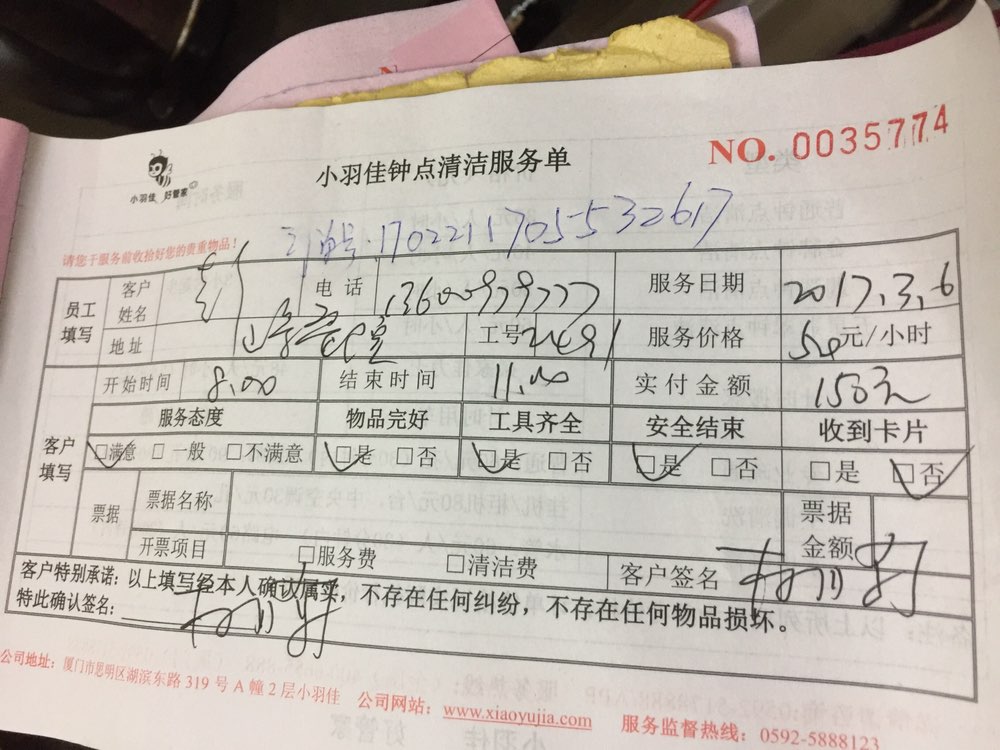 NO. 0035774
小羽佳 好管家
小羽佳钟点清洁服务单
订单号:170221170555532617
请您于服务前收拾好您的贵重物品!
员工填写 客户姓名 电话 13600979777 服务日期 2017.3.6
地址 工号 服务价格 元/小时
客户填写 开始时间 8:00 结束时间 11:00 实付金额
服务态度 物品完好 工具齐全 安全结束 收到卡片
□满意 □一般 □不满意 □是 □否 □是 □否 □是 □否 □是 □否
票据 票据名称 票据金额
开票项目 □服务费 □清洁费 客户签名
客户特别承诺:以上填写经本人确认属实,不存在任何纠纷,不存在任何物品损坏。
特此确认签名:
公司地址:厦门市思明区湖滨东路319号A幢2层小羽佳 公司网站:www.xiaoyujia.com 服务监督热线:0592-5888123